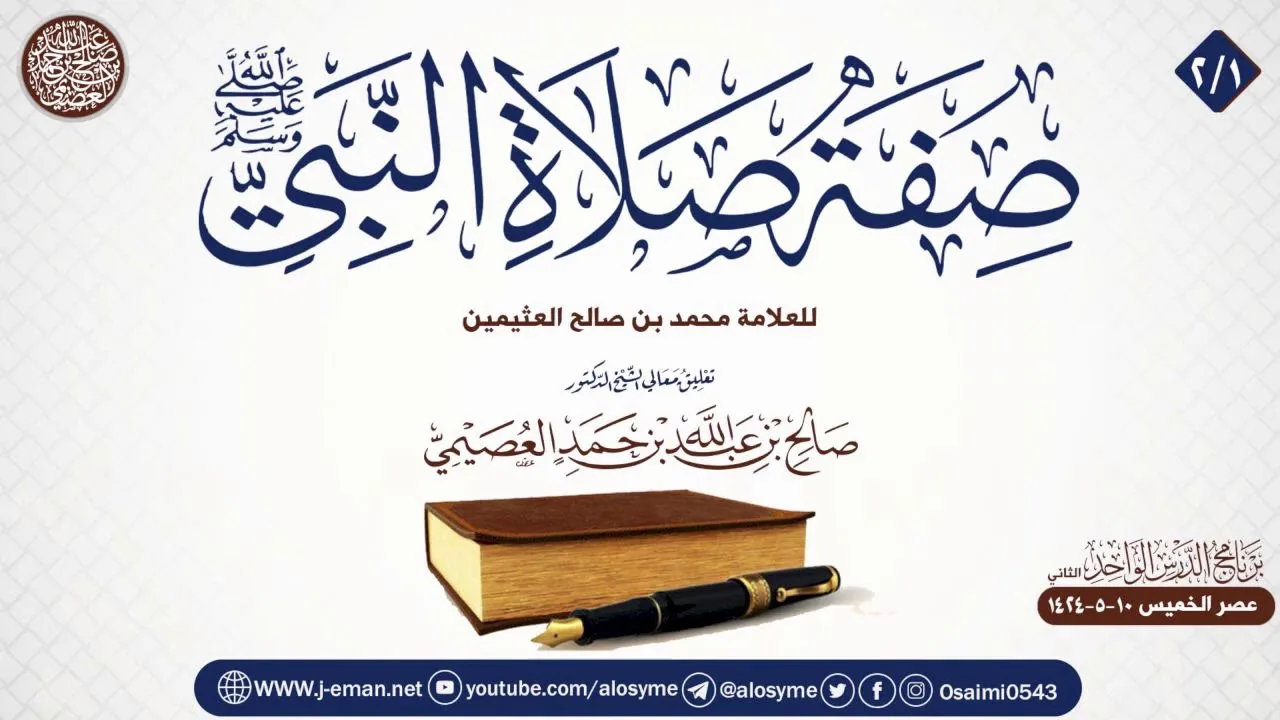 ٢/١
صِفَةُ صَلَاةِ النَّبِيِّ
صَلَّى اللَّهُ عَلَيْهِ وَسَلَّمَ
للعلامة محمد بن صالح العثيمين
تَعْلِيقُ مَعَالِي الشَّيْخِ الدُّكْتُورِ
صَالِحِ بْنِ عَبْدِ اللَّهِ بْنِ حَمَدٍ الْعُصَيْمِيِّ
بَرْنَامَجُ الدَّرْسِ الْوَاحِدِ الثاني
عصر الخميس ١٠-٥-١٤٢٤
WWW.j-eman.net youtube.com/alosyme @alosyme Osaimi0543